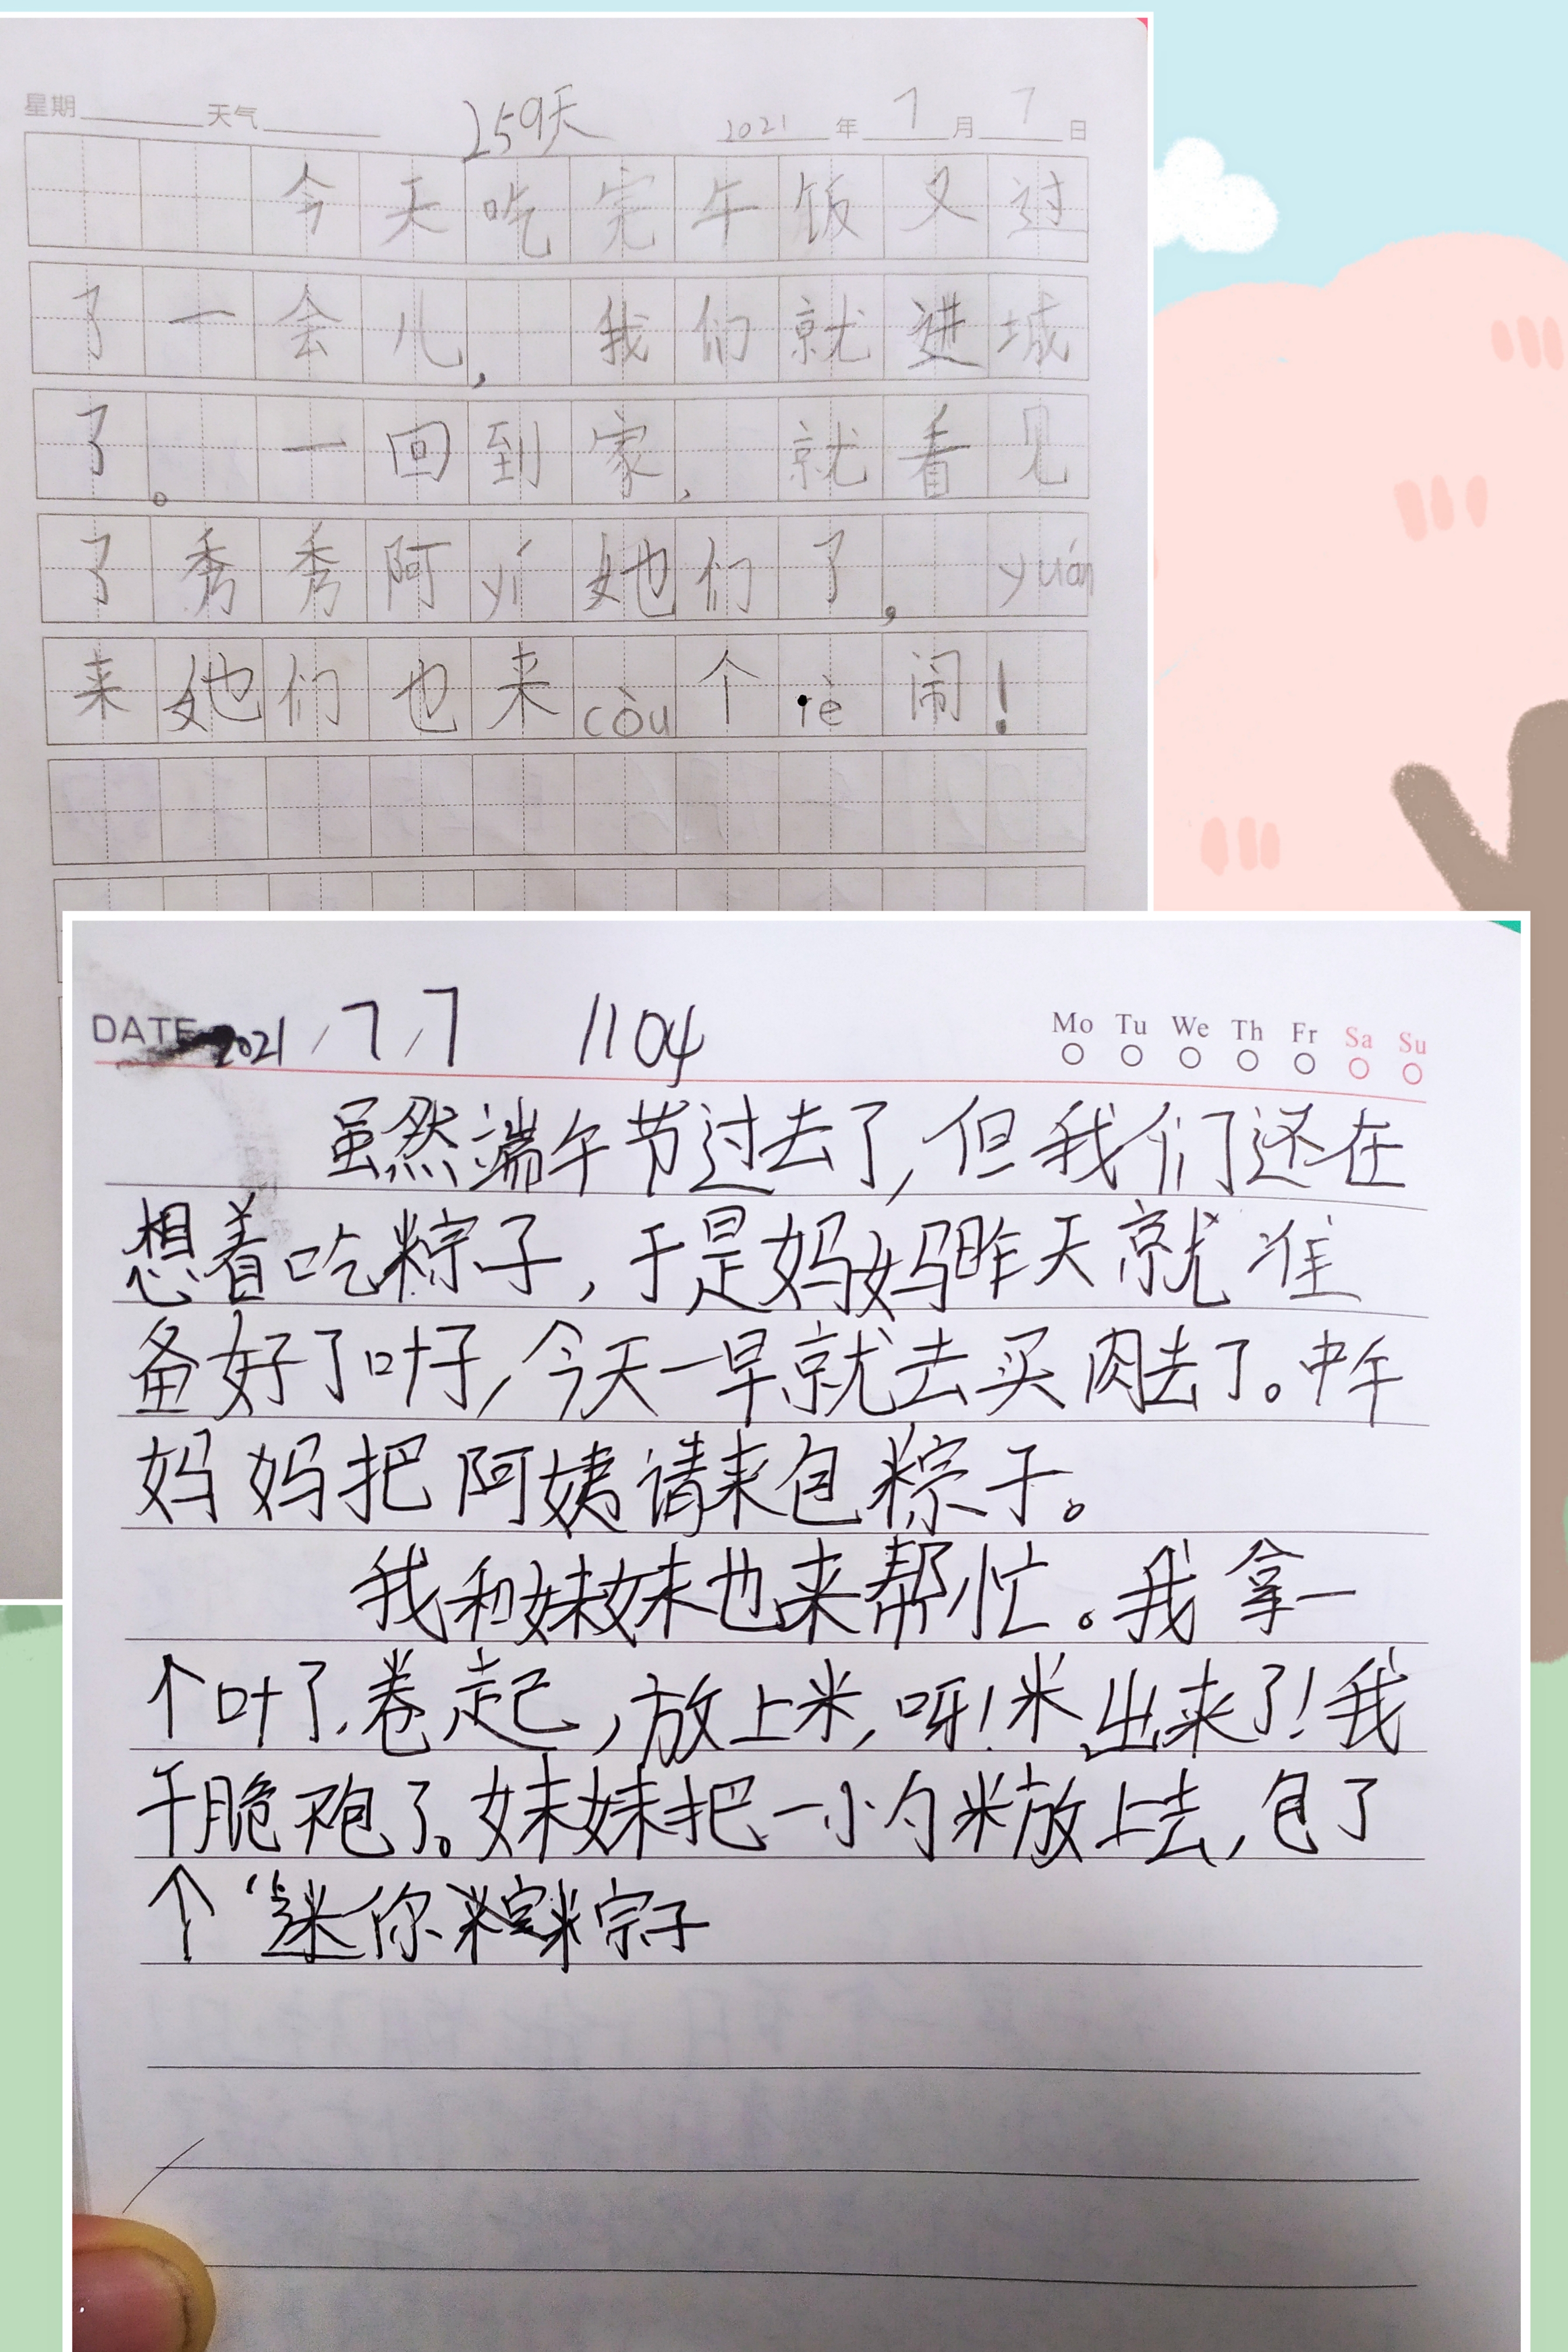 星期 天气 259天 2021 年 7 月 7 日
今天吃完午饭又过
了一会儿,我们就进城
了。一回到家,就看见
了秀秀阿yí她们了,yuán
来她们也来còu个rè闹!
DATE 2021/7/7 1104 Mo Tu We Th Fr Sa Su
虽然端午节过去了,但我们还在
想着吃粽子,于是妈妈昨天就准
备好了叶子,今天一早就去买肉去了。中午
妈妈把阿姨请来包粽子。
我和妹妹也来帮忙。我拿一
个叶了,卷起,放上米,呀!米出来了!我
干脆不包了。妹妹把一小勺米放上去,包了
个“迷你粽子